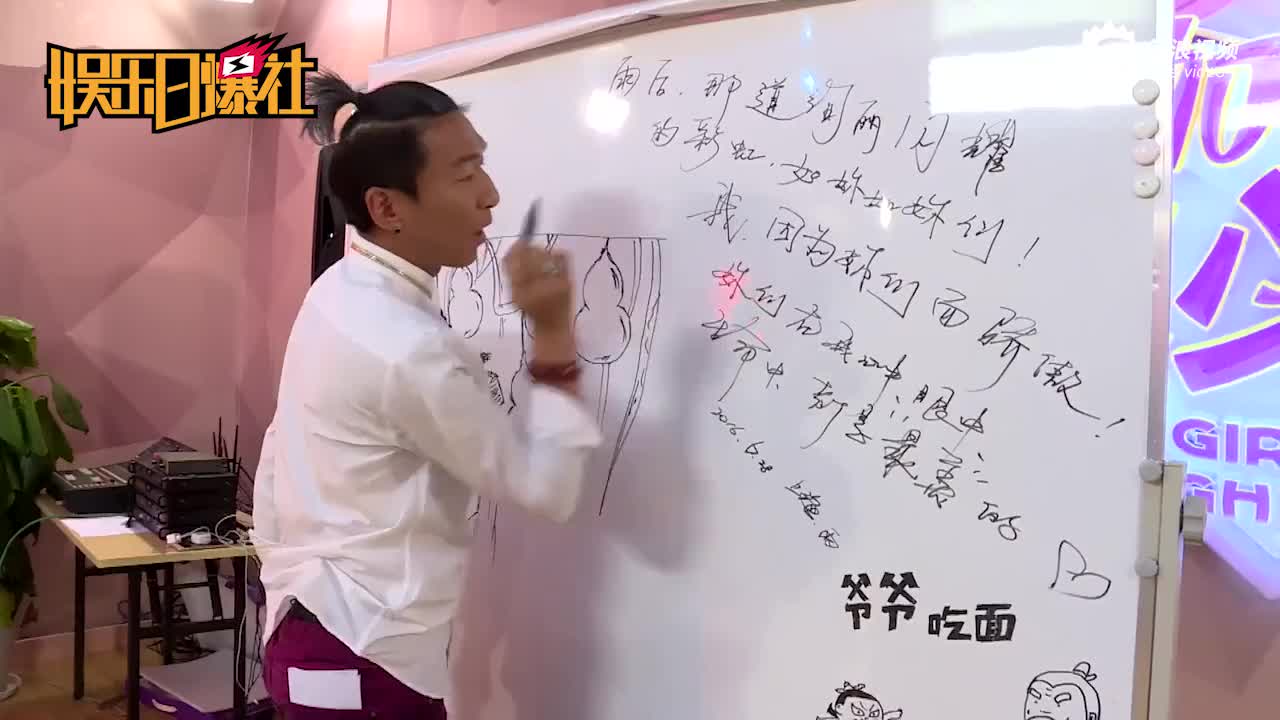 娱乐日爆社
浪视频
VIDEO
雨后、那道绚丽闪耀
的彩虹、如妳如妳们!
我、因为妳们而骄傲!
妳们在我心中、眼中
生命中 都是最亮的
2016.6.28 上海 雨
爷爷吃面
GIR
GH